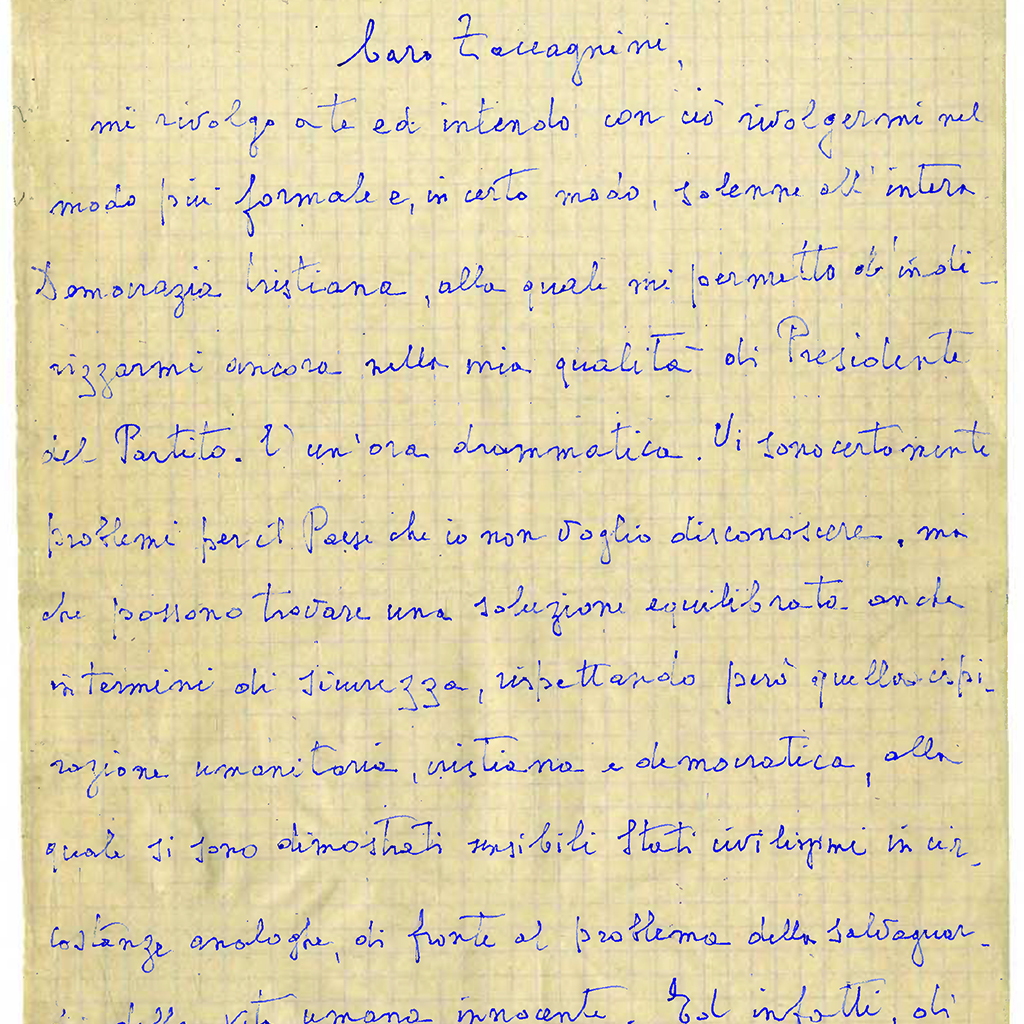 Caro Zaccagnini,
mi rivolgo a te ed intendo con ciò rivolgermi nel
modo più formale e, in certo modo, solenne all'intera
Democrazia Cristiana, alla quale mi permetto d'indi-
rizzarmi ancora nella mia qualità di Presidente
del Partito. E' un'ora drammatica. Vi sono certamente
problemi per il Paese che io non voglio disconoscere, ma
che possono trovare una soluzione equilibrata anche
in termini di sicurezza, rispettando però quella ispi-
razione umanitaria, cristiana e democratica, alla
quale si sono dimostrati sensibili Stati civilissimi in cir-
costanze analoghe, di fronte al problema della salvaguar-
della vita umana innocente. Ed infatti, di